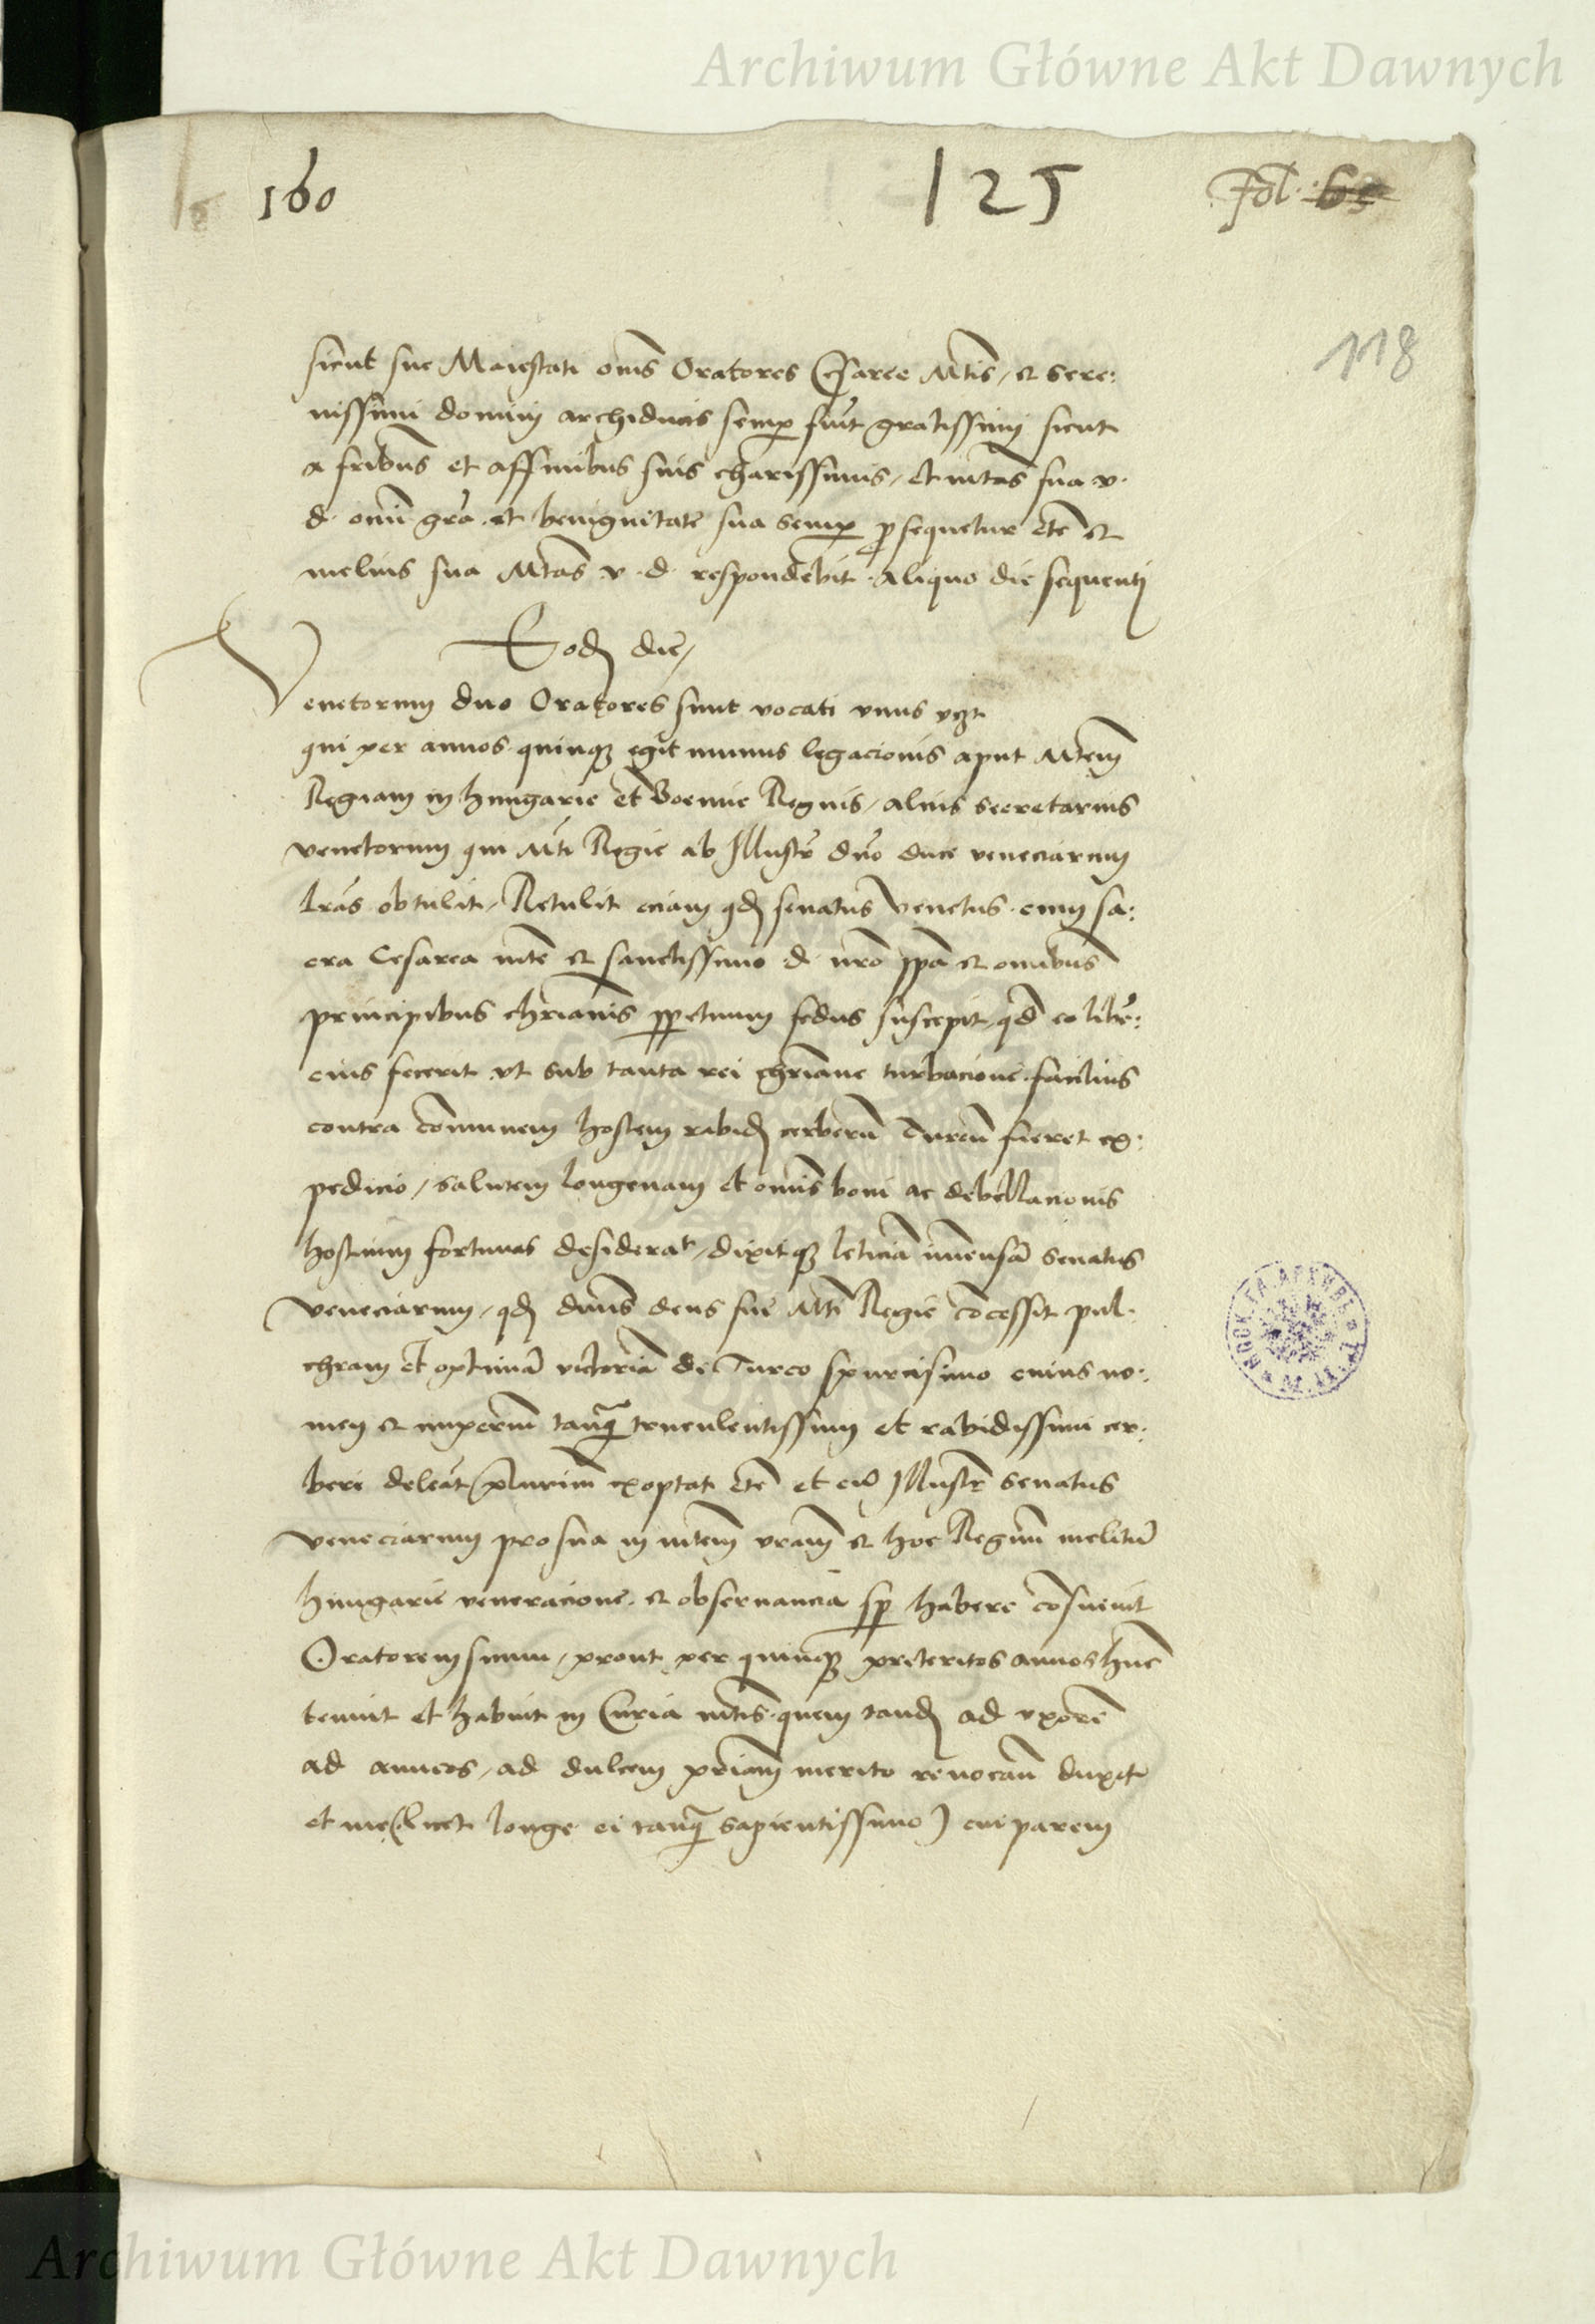 Archiwum Główne Akt Dawnych
160
125
Fol. 65
118
sicut sue Maiestati om̄s Oratores Cesaree Mtis, et sere:
nissimi domini archiducis semp fuer̄t gratissimi sicut
a frībus et affinibus suis charissimis, et mtas sua v.
d. omi gra et benignitate sua semp prosequetur etc et
melius sua Mtas v. d. respondebit. Aliquo die sequenti
Eodē die,
Venetorum duo Oratores sunt vocati vnus vz
qui per annos quinq3 egit munus legacionis aput Mtem
Regiam in hungarie et Boemie Regnis, alius secretarius
venetorum qui Mti Regie ab Illustr̄ dn̄o duce veneciarum
lr̄as obtulit, Retulit eciam qd senatus venetus cum sa:
cra Cesarea mte et sanctissimo d. nr̄o ppa et omibus
principibus chrīanis ppetuum fedus suscepit, qd eo libe:
cius fecerit vt sub tanta rei chrīane turbacione facilius
contra comunem hostem rabidū cerberū Turcū fieret ex:
pedicio, salutem longeuam et om̄is boni ac debellacionis
hostium fortunas desiderat, dixitq3 leticiā imensā senatus
veneciarum, qd diuus deus sue Mti Regie cōcessit pul:
chram et optimā victoriā de Turco spurcisimo cuius no:
men et imperiū tanq̄ truculentissimi et rabidissimi cer:
beri deleāt plurimū exoptat etc et cū Illustr̄ senatus
veneciarum pro sua in mtem vram et hoc Regnū melitū
hungarie veneracione et obseruancia sp habere cōsueuit
Oratorem suum, prout per quinq3 preteritos annos hūc
tenuit et habuit in Curia mtis. quem tandē ad vxorē
ad amicos, ad dulcem pr̄iam merito reuocatū duxit
et me (licet longe ei tanq̄ sapientissimo) cui parem
Archiwum Główne Akt Dawnych